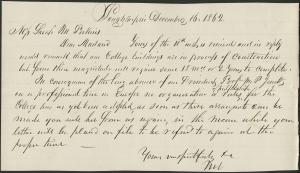 Poughkeepsie December 16. 1862
Miss Sarah M
Dear Madam Yours of the 11th inst. is received and in reply
would remark that our College buildings are in process of construction
but from their magnitude will require some 18 mos. or 2 years to complete.
In consequence of the long absence of our President, Prof. M. P. Jewett
on a professional tour in Europe no organization of the
College has as yet been adopted, as soon as these arrangements can be
made you will hear from us again, in the mean while your
letter will be placed on file to be referred to again at the
proper time
Yours respectfully &c